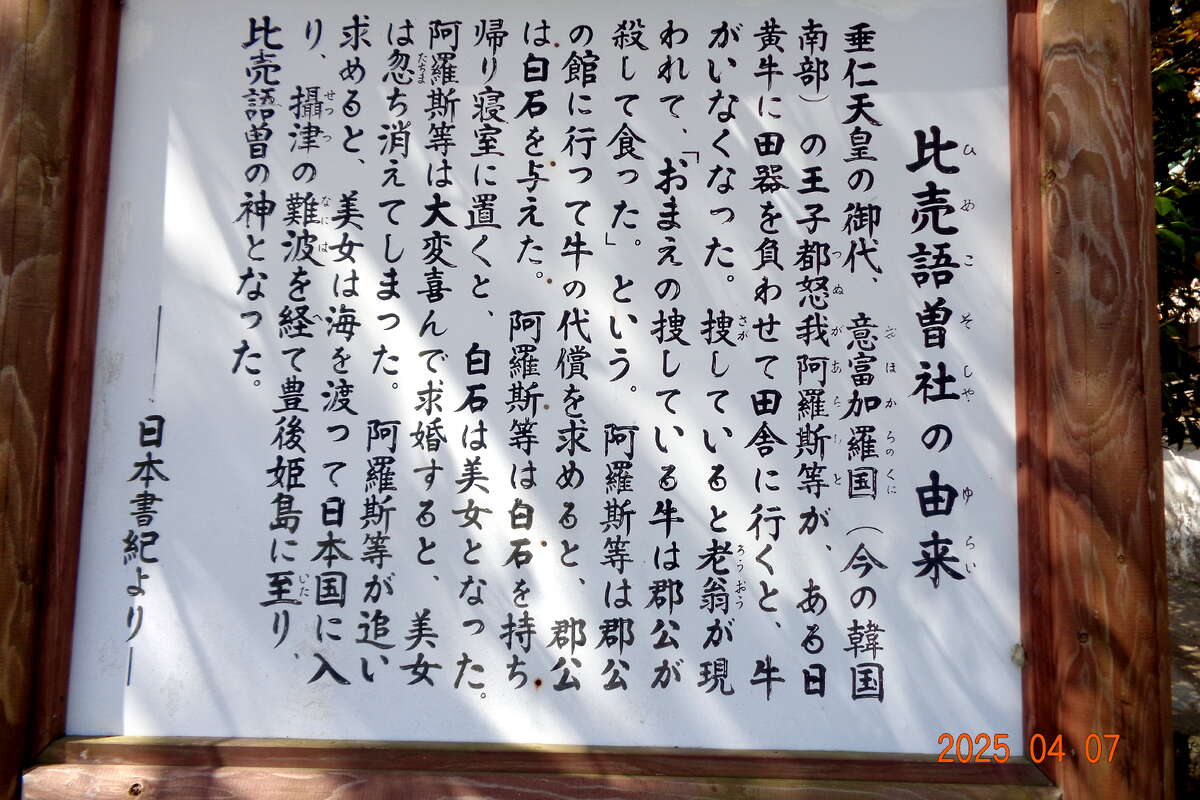 比売語曽社の由来
垂仁天皇の御代、意富加羅国（今の韓国
南部）の王子都怒我阿羅斯等が、ある日
黄牛に田器を負わせて田舎に行くと、牛
がいなくなった。捜していると老翁が現
われて、「おまえの捜している牛は郡公が
殺して食った」という。阿羅斯等は郡公
の館に行って牛の代償を求めると、郡公
は白石を与えた。阿羅斯等は白石を持ち
帰り寝室に置くと、白石は美女となった。
阿羅斯等は大変喜んで求婚すると、美女
は忽ち消えてしまった。阿羅斯等が追い
求めると、美女は海を渡って日本国に入
り、攝津の難波を経て豊後姫島に至り、
比売語曽の神となった。
日本書紀より
2025 04 07